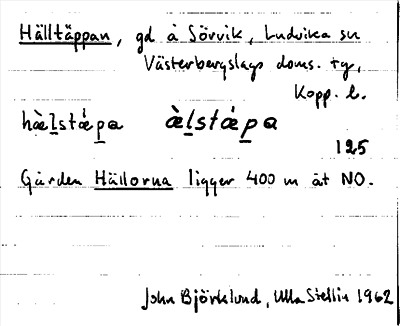 Hälltäppan, gd å Sörvik, Ludvika sn
Västerbergslags doms. tg,
Kopp. l.
hæ̀lstǽpa æ̀lstǽpa
125
Gården Hällorna ligger 400 m åt NO.
John Björklund, Ulla Stellin 1962